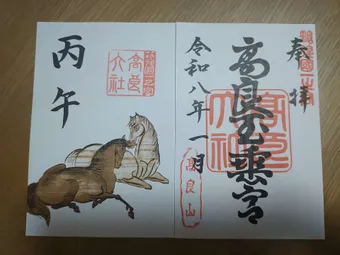 奉拝
高良玉垂宮
高良
大社
令和八年一月
高良山
高良
大社
丙午